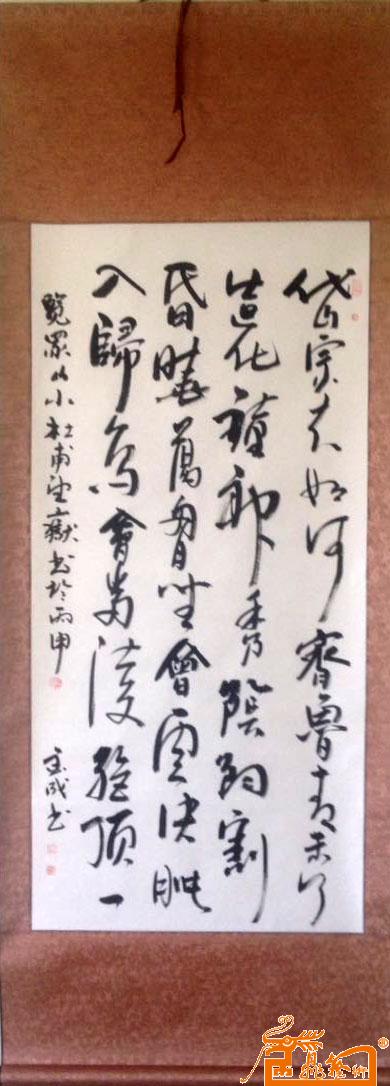 岱宗夫如何齊魯青未了
造化鍾神秀陰陽割
昏曉蕩胸生曾雲決眥
入歸鳥會當凌絕頂一
覽眾山小杜甫望嶽書於丙申
書